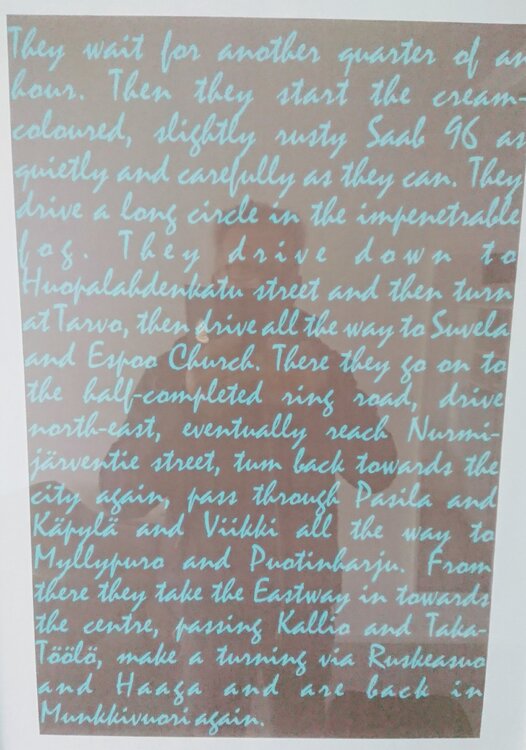 They wait for another quarter of an
hour. Then they start the cream-
coloured, slightly rusty Saab 96 as
quietly and carefully as they can. They
drive a long circle in the impenetrable
fog. They drive down to
Huopalahdenkatu street and then turn
at Tarvo, then drive all the way to Suvela
and Espoo Church. There they go on to
the half-completed ring road, drive
north-east, eventually reach Nurmi-
järventie street, turn back towards the
city again, pass through Pasila and
Käpylä and Viikki all the way to
Myllypuro and Puotinharju. From
there they take the Eastway in towards
the centre, passing Kallio and Taka-
Töölö, make a turning via Ruskeasuo
and Haaga and are back in
Munkkivuori again.